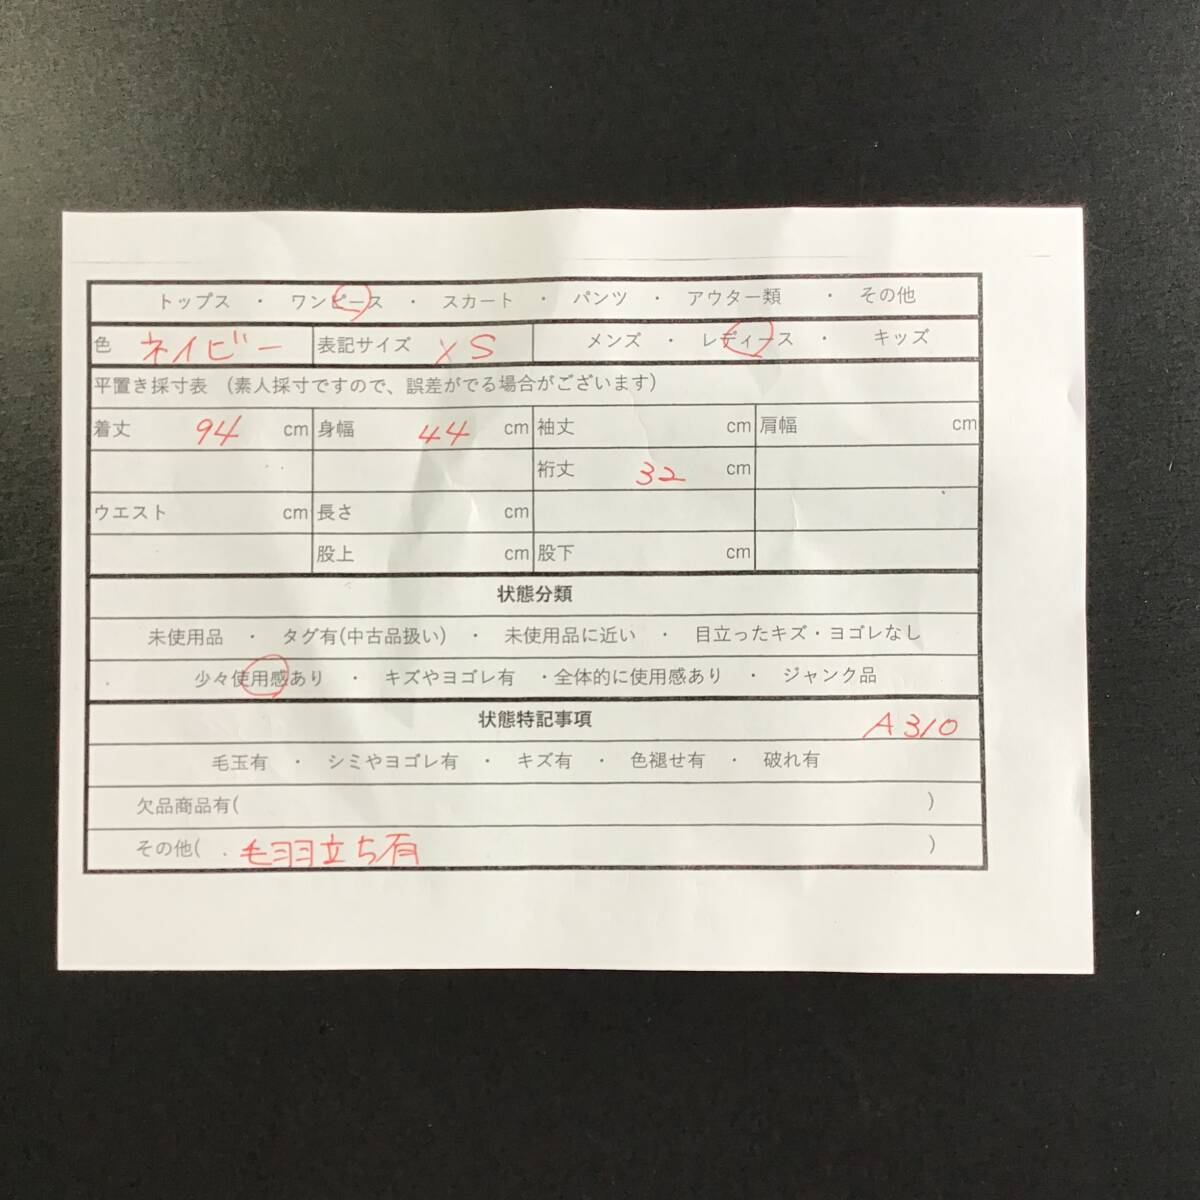 トップス ・ ワンピース ・ スカート ・ パンツ ・ アウター類 ・ その他
色 ネイビー 表記サイズ XS メンズ ・ レディース ・ キッズ
平置き採寸表 (素人採寸ですので、誤差がでる場合がございます)
着丈 94 cm 身幅 44 cm 袖丈 cm 肩幅 cm
裄丈 32 cm
ウエスト cm 長さ cm
股上 cm 股下 cm
状態分類
未使用品 ・ タグ有(中古品扱い) ・ 未使用品に近い ・ 目立ったキズ・ヨゴレなし
少々使用感あり ・ キズやヨゴレ有 ・全体的に使用感あり ・ ジャンク品
状態特記事項 A310
毛玉有 ・ シミやヨゴレ有 ・ キズ有 ・ 色褪せ有 ・ 破れ有
欠品商品有( )
その他( 毛羽立ち有 )